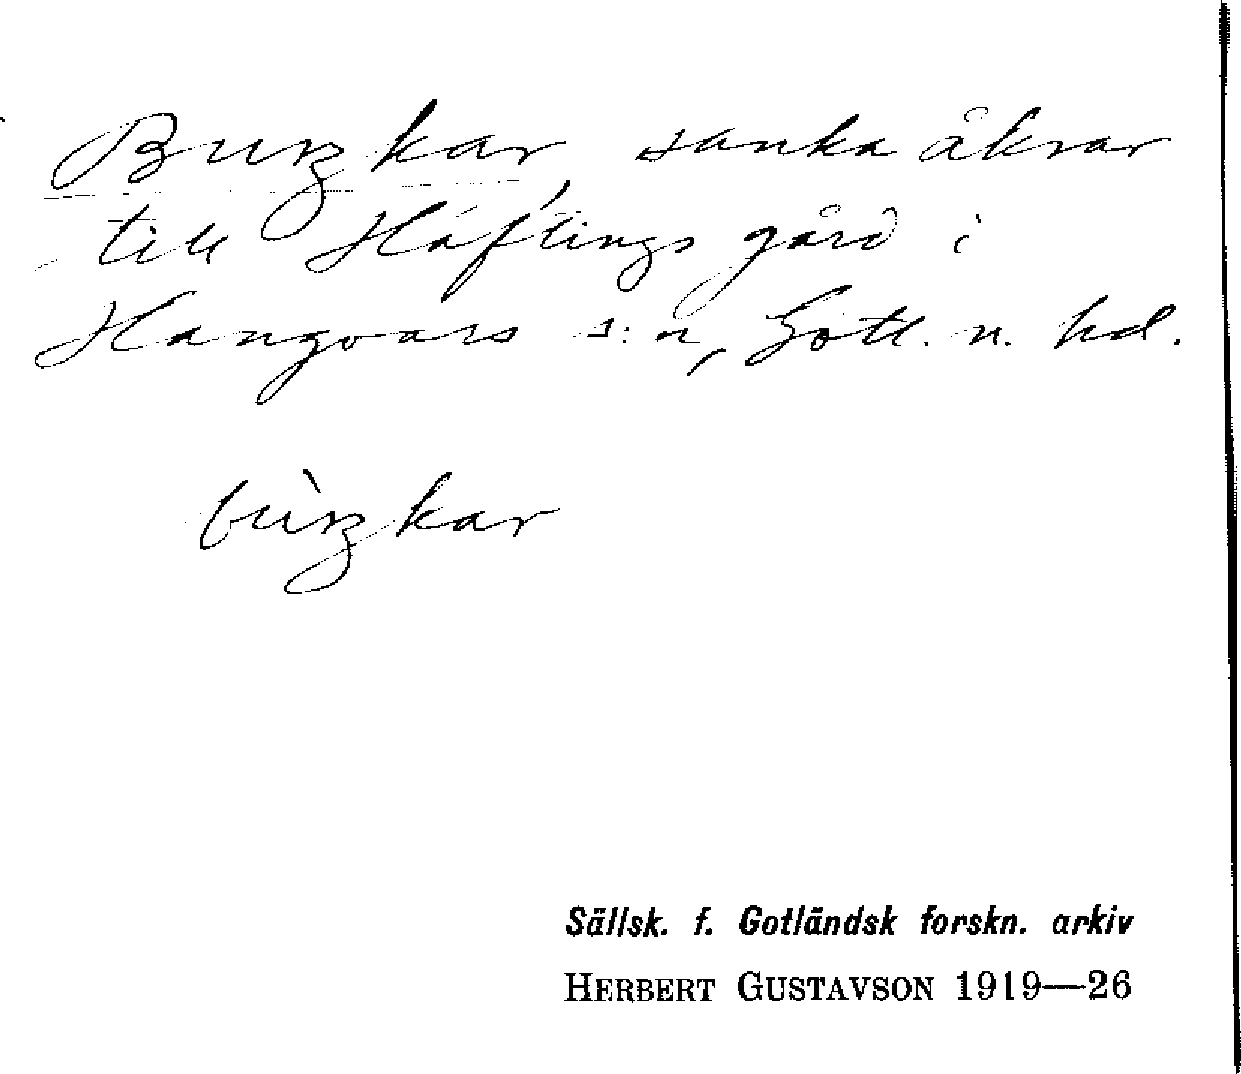 Burgkar, sanka åkrar
till Häftings gård i
Hangvars s:n, Gotl. n. hd.
bùrgkar
Sällsk. f. Gotländsk forskn. arkiv
HERBERT GUSTAVSON 1919—26